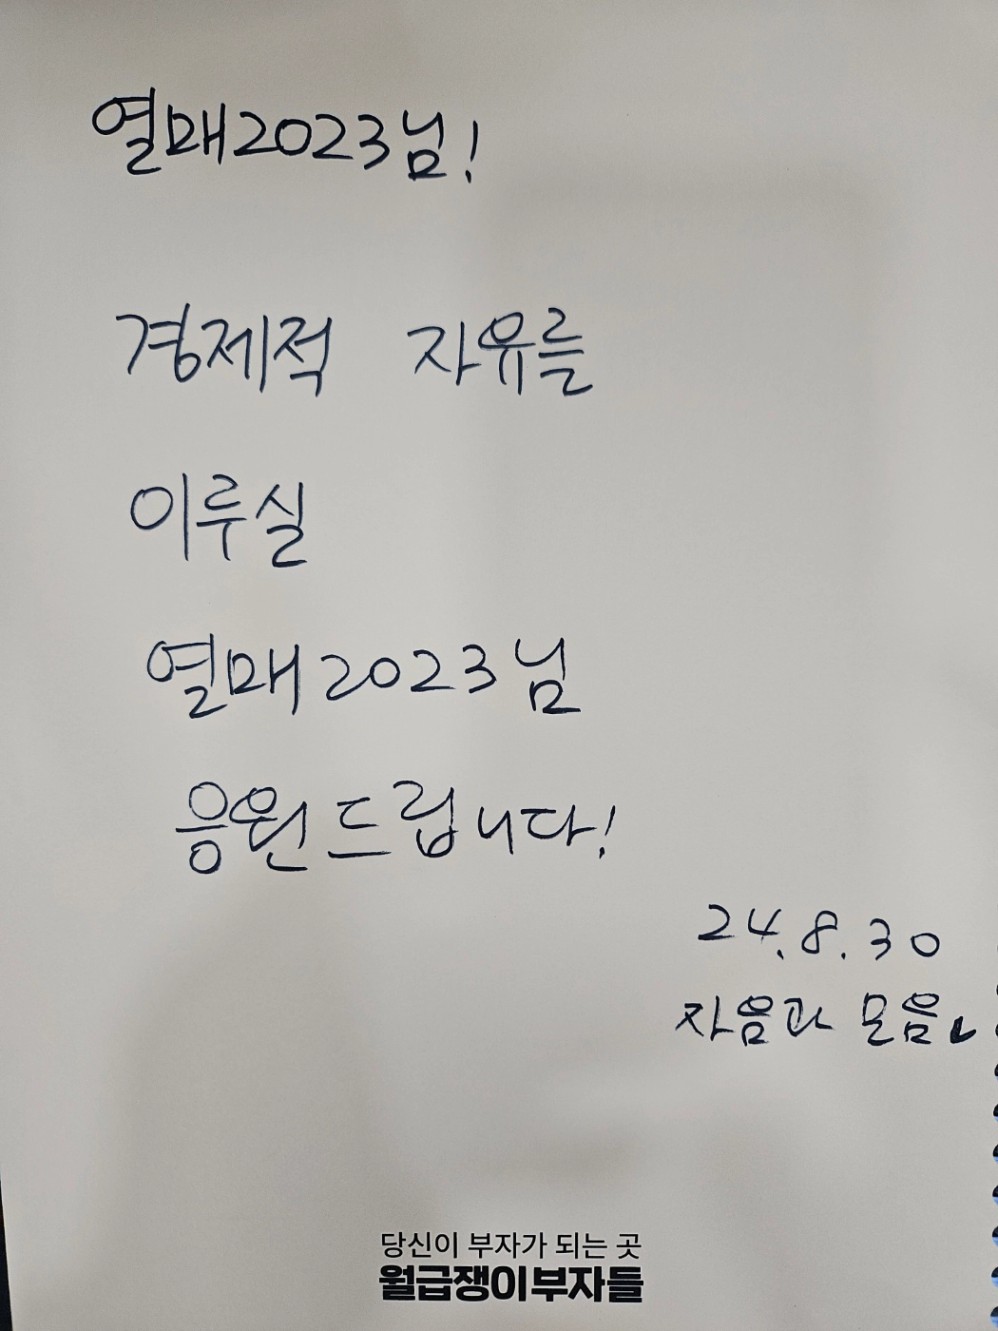 열매2023님!
경제적 자유를
이루실
열매2023님
응원드립니다!
24.8.30
자음과 모음
당신이 부자가 되는 곳
월급쟁이부자들